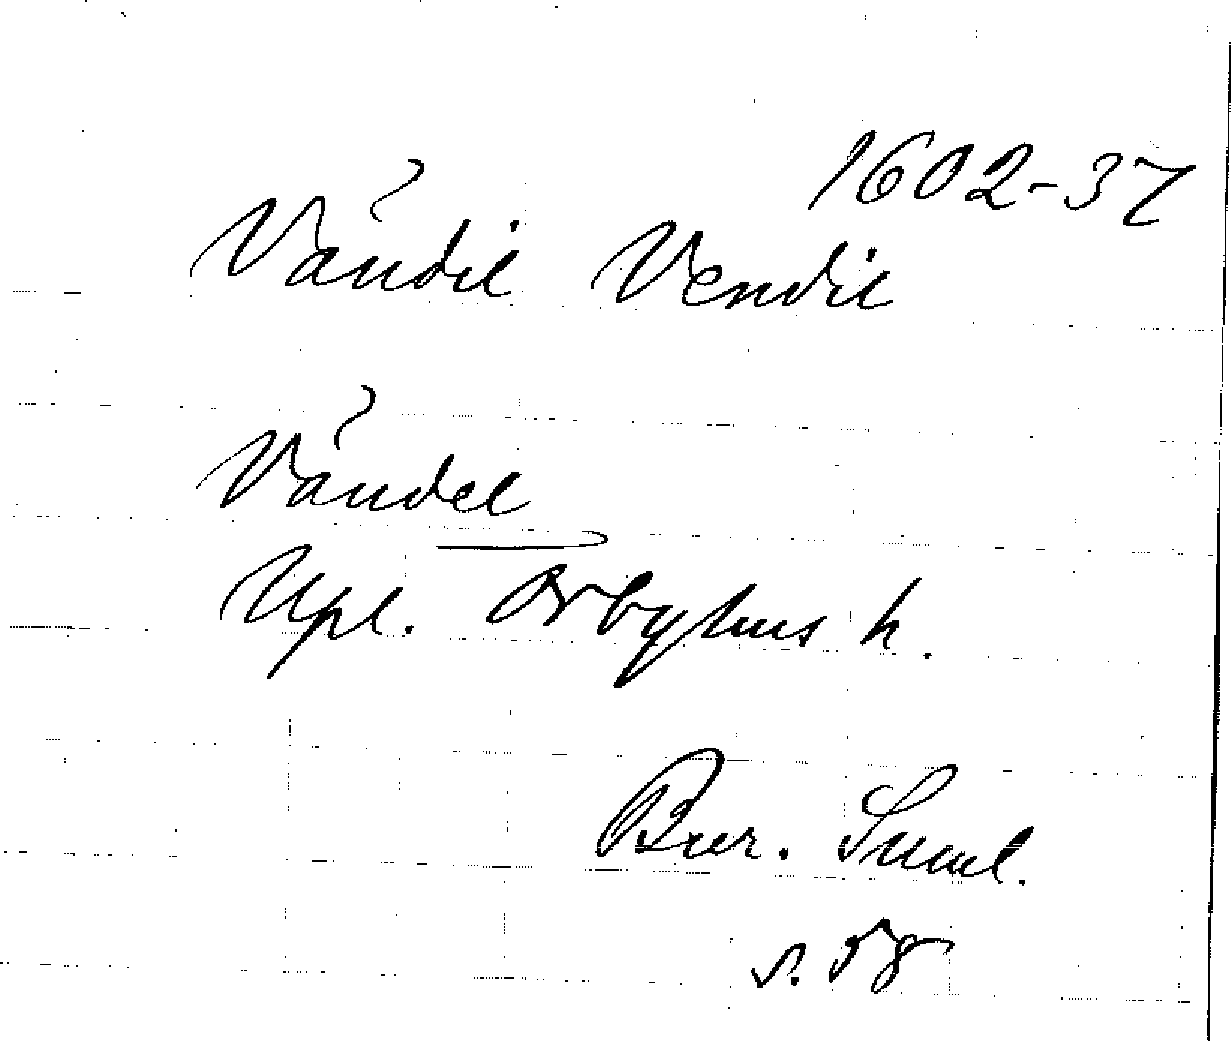 1602-37
Vändil Vendil
Vändel
Upl. Örbyhus h.
Bur. Suml.
s. 58